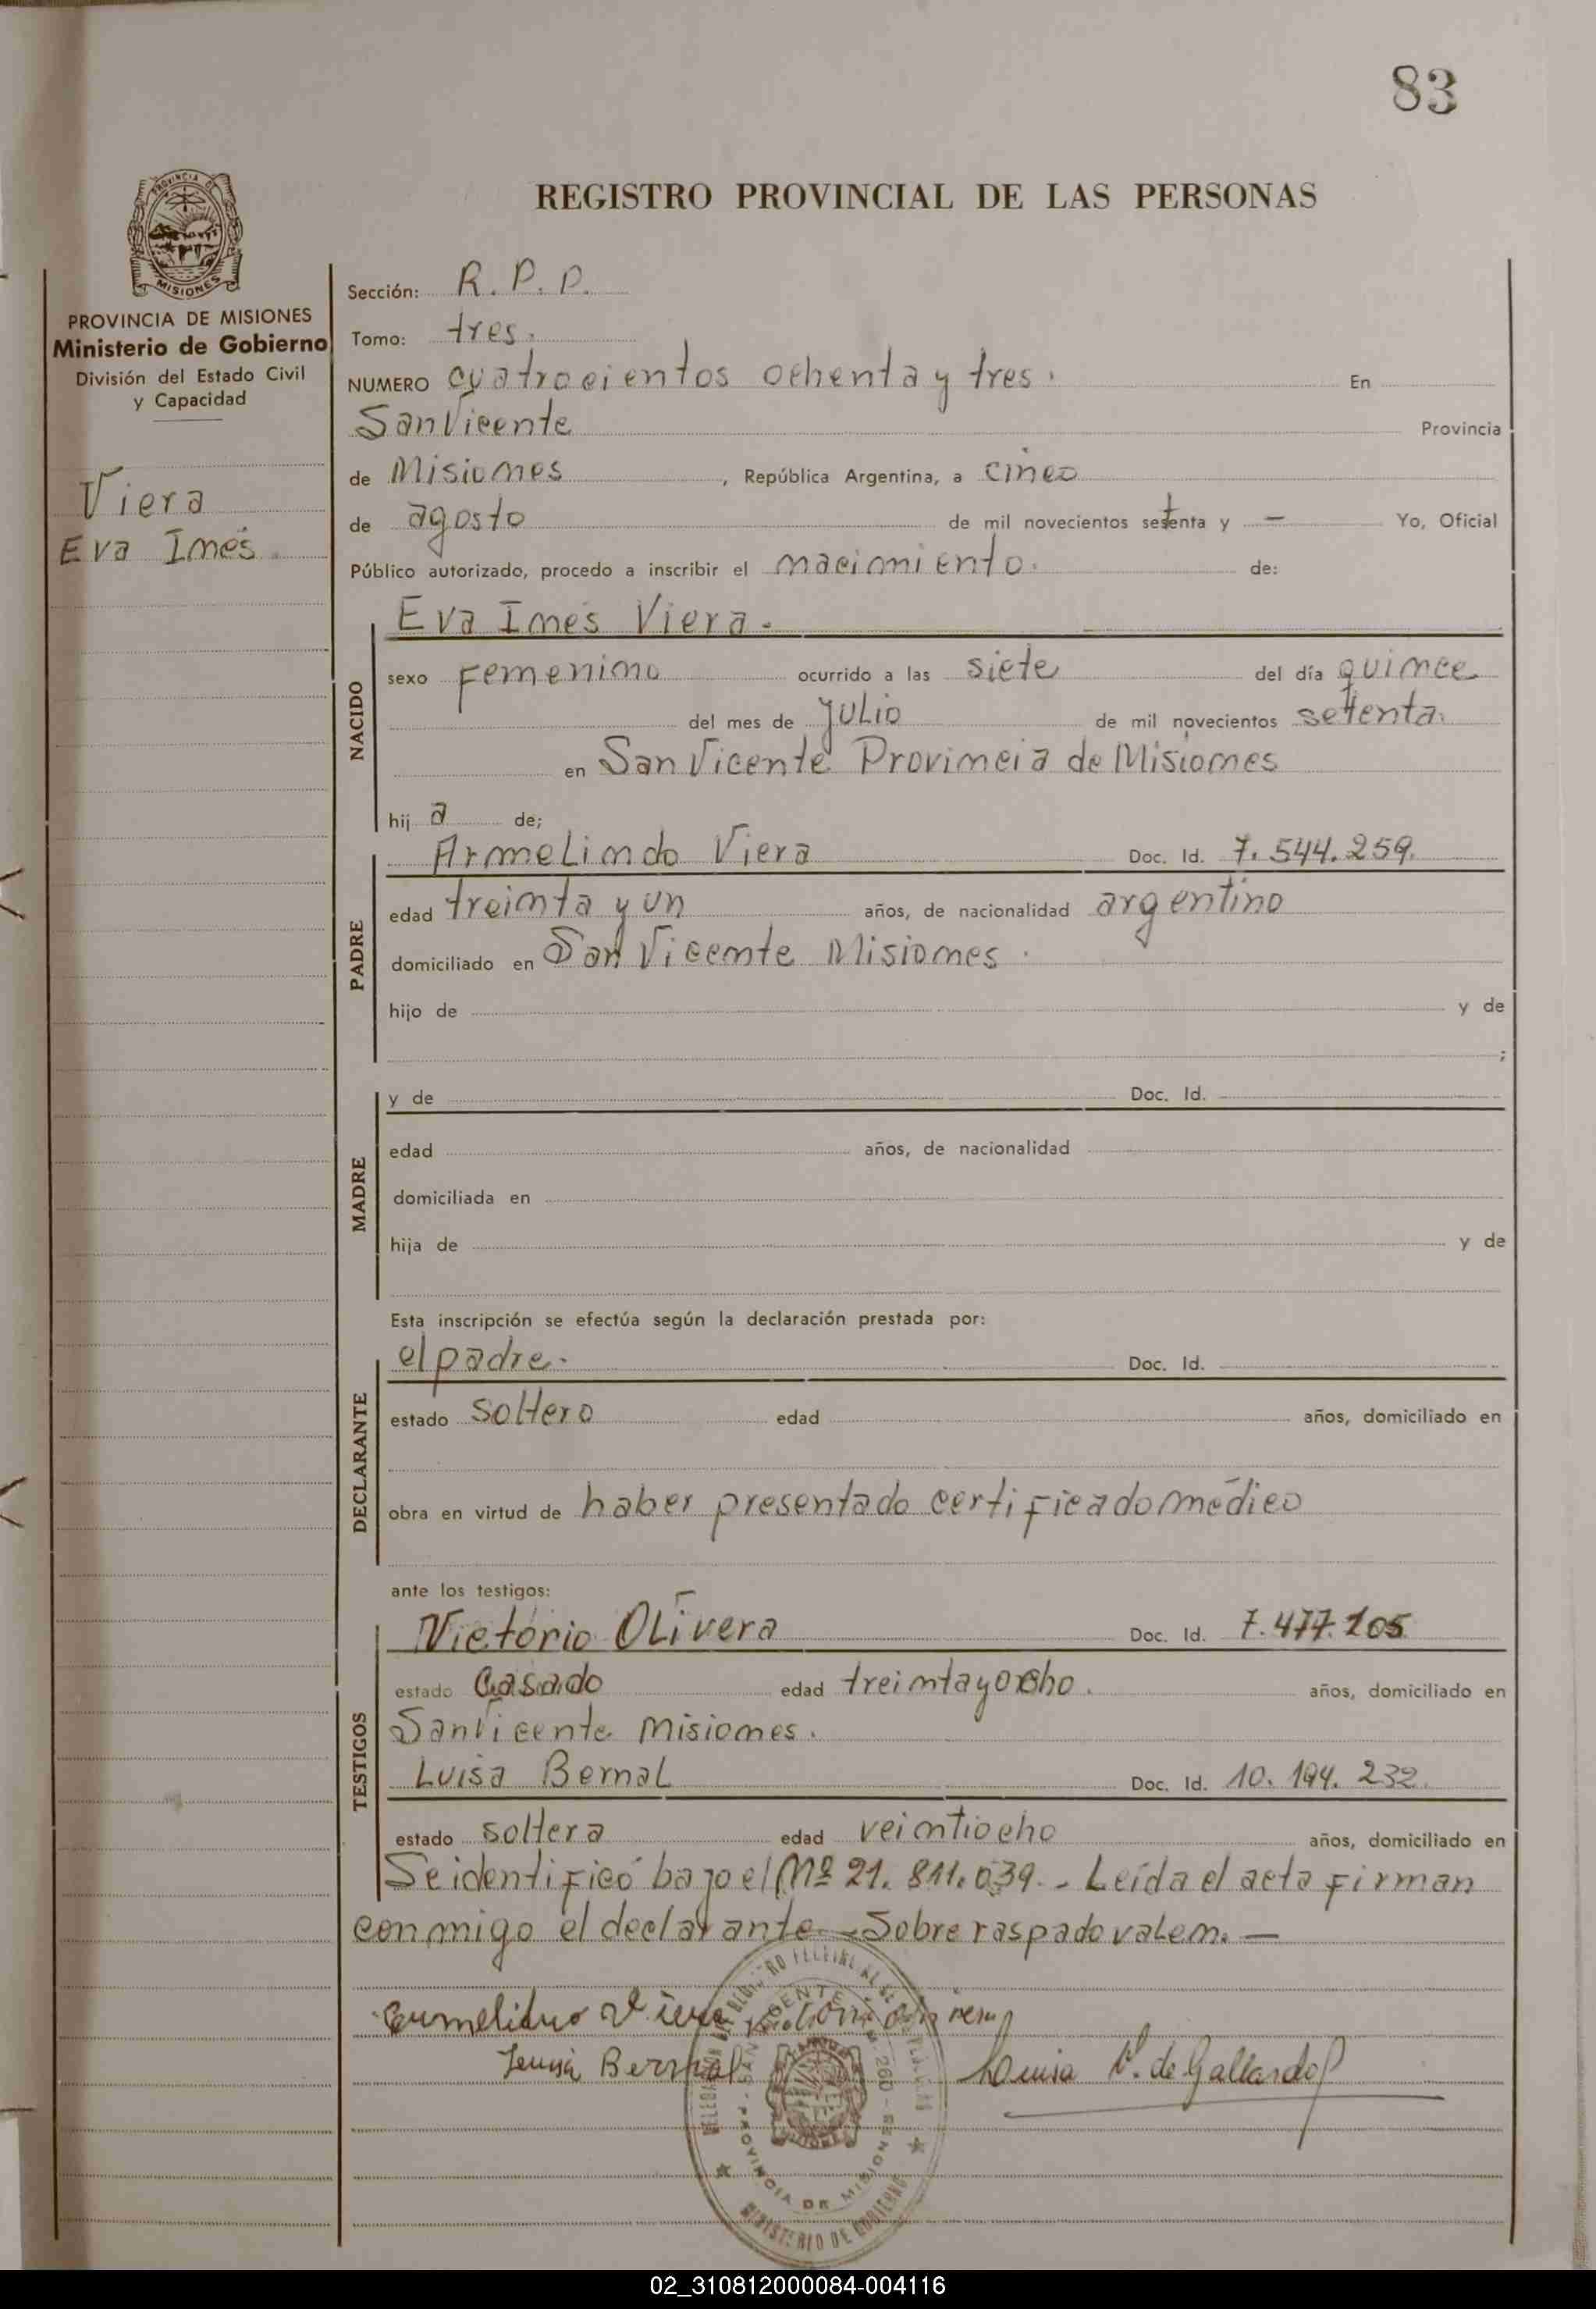 83
REGISTRO PROVINCIAL DE LAS PERSONAS
PROVINCIA DE
MISIONES
PROVINCIA DE MISIONES
Ministerio de Gobierno
División del Estado Civil
y Capacidad
Viera
Eva Inés.
Sección: R. P. P.
Tomo: tres.
NUMERO cuatrocientos ochenta y tres. En
San Vicente Provincia
de Misiones, República Argentina, a cinco
de agosto de mil novecientos setenta y — Yo, Oficial
Público autorizado, procedo a inscribir el nacimiento. de:
NACIDO
Eva Inés Viera.
sexo Femenino ocurrido a las siete del día quince
del mes de Julio de mil novecientos setenta.
en San Vicente Provincia de Misiones
hij a de;
PADRE
Armelindo Viera Doc. Id. 7.544.259.
edad treinta y un años, de nacionalidad argentino
domiciliado en San Vicente Misiones.
hijo de y de
;
MADRE
y de Doc. Id.
edad años, de nacionalidad
domiciliada en
hija de y de
Esta inscripción se efectúa según la declaración prestada por:
DECLARANTE
el padre. Doc. Id.
estado soltero edad años, domiciliado en
obra en virtud de haber presentado certificado médico
ante los testigos:
TESTIGOS
Victorio Olivera Doc. Id. 7.477.105
estado Casado edad treinta y ocho. años, domiciliado en
San Vicente Misiones.
Luisa Bernal Doc. Id. 10.194.232.
estado soltera edad veintiocho años, domiciliado en
Se identificó bajo el Nº 21.811.039.- Leída el acta firman
conmigo el declarante - Sobre raspado valen. —
Viera
Bernal Luisa V. de Gallardo
SAN VICENTE
PROVINCIA DE MISIONES
MINISTERIO DE GOBIERNO
02_310812000084-004116